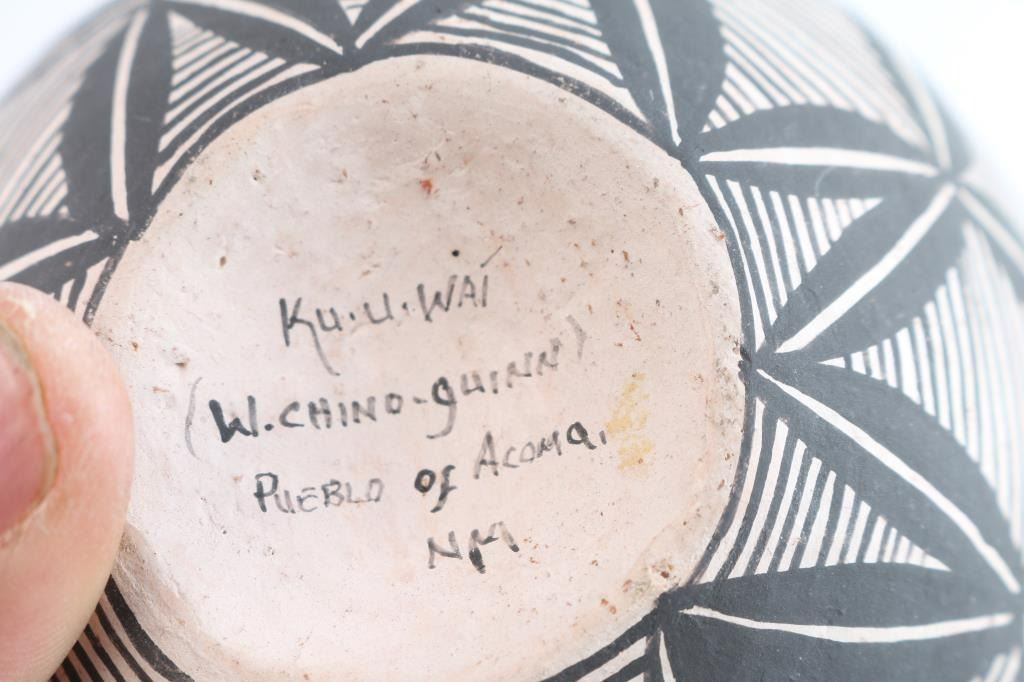 KU.U.WAÍ
(W.CHINO-QUINN)
PUEBLO OF ACOMA,
NM